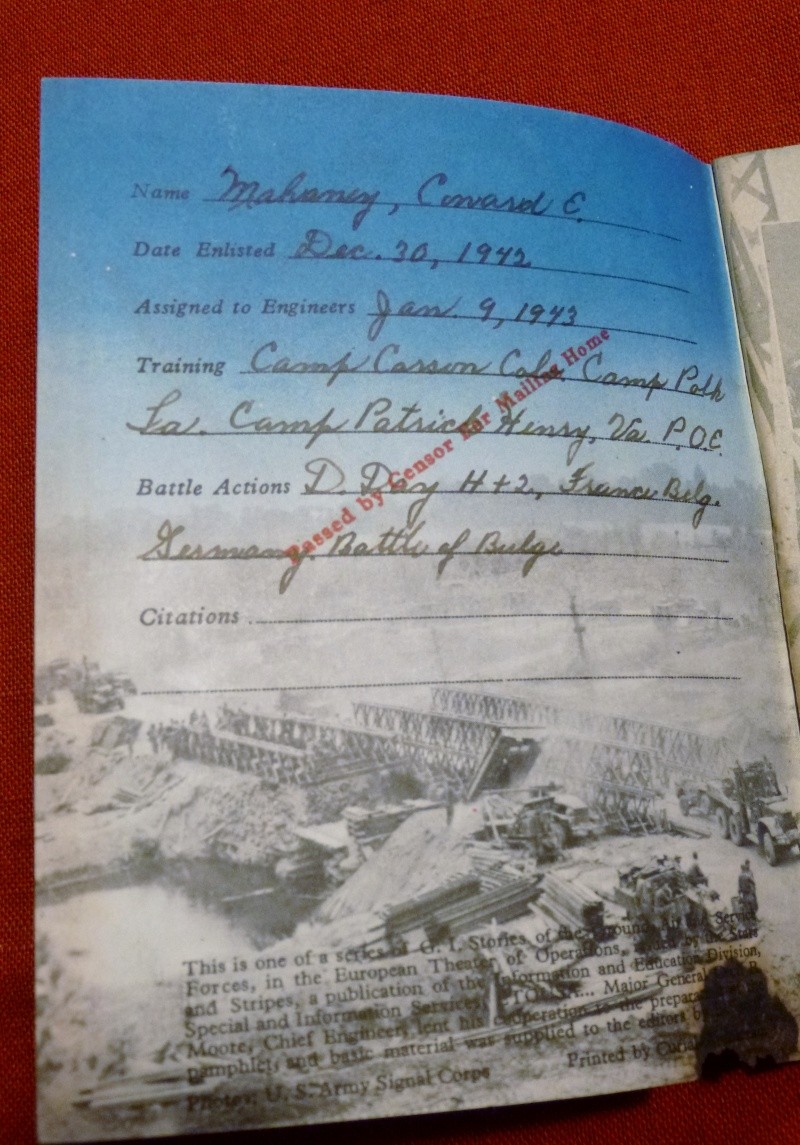 Name Mahaney, Coward E.
Date Enlisted Dec. 30, 1942
Assigned to Engineers Jan. 9, 1943
Training Camp Carson Colo. Camp Polk
La. Camp Patrick Henry, Va. P.O.E.
Battle Actions D. Day H+2, France Belg.
Germany. Battle of Bulge
Passed by Censor For Mailing Home
Citations
This is one of a series of G. I. Stories of the Ground, Air and Service
Forces, in the European Theater of Operations, issued by the Stars
and Stripes, a publication of the Information and Education Division,
Special and Information Services, ETOUSA... Major General
Moore, Chief Engineer, lent his cooperation to the preparation
pamphlet, and basic material was supplied to the editors by
Photos: U. S. Army Signal Corps Printed by